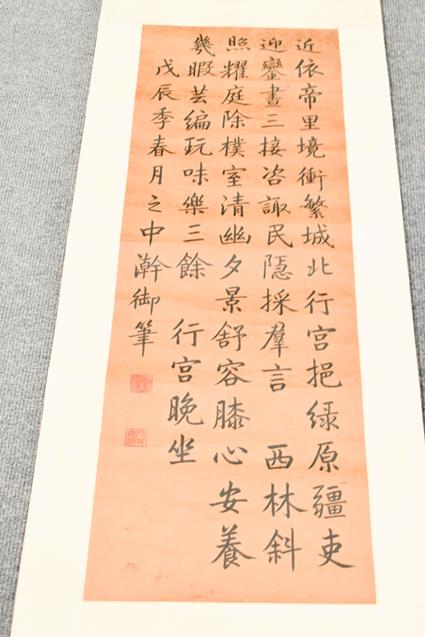 近依帝里境衝繁城北行宫挹緑原疆吏
迎鑾晝三接咨諏民隱採羣言 西林斜
照耀庭除樸室清幽夕景舒容膝心安養
幾暇芸編玩味樂三餘 行宫晚坐
戊辰季春月之中澣御筆